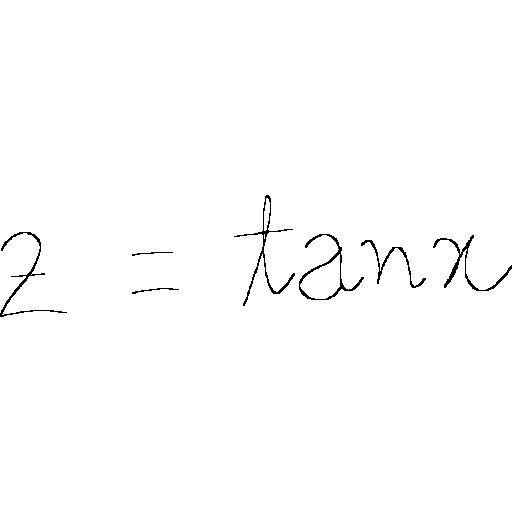 z = tanx